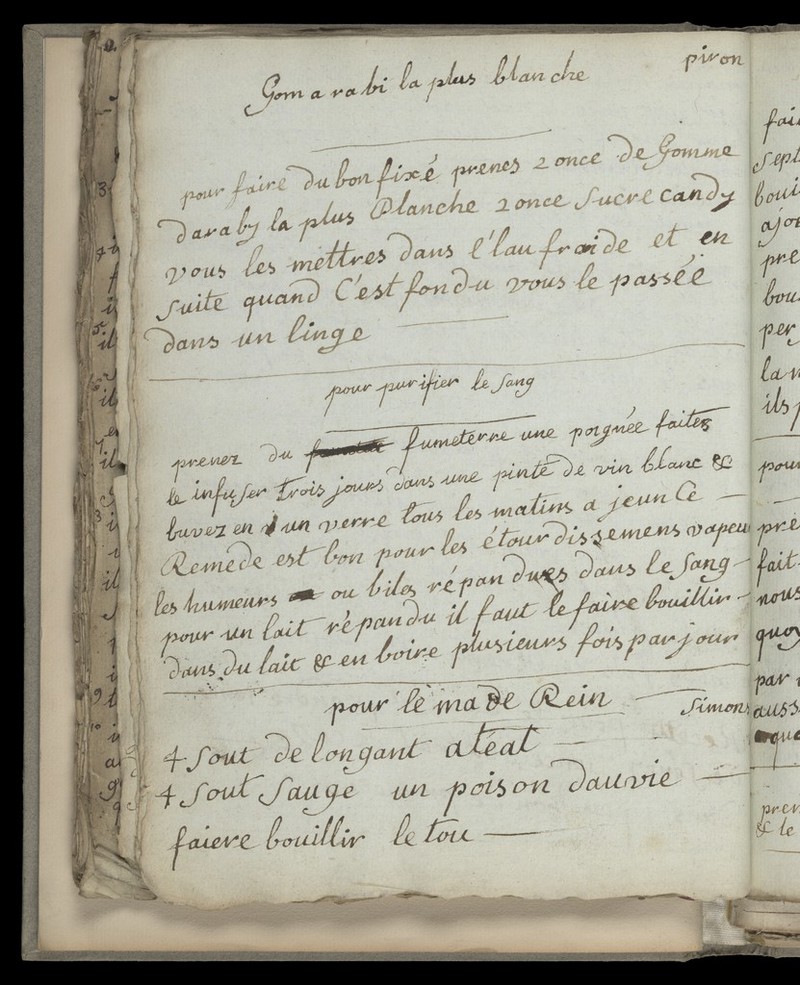 piron
Gom a ra bi la plus blanche
pour faire du bon fixé prenes 2 once de Gomme
daraby la plus Blanche 2 once sucre candy
vous les mettres dans l'lau fraide et en
suite quand C'est fondu vous le passéé
dans un linge
pour purifier le sang
prenez du fumeterre une poignée faites
le infuser trois jours dans une pinte de vin blanc &
buvez en un verre tous les matins a jeun Ce
Remede est bon pour les étourdissemens vapeu
les humeurs ou biles répandues dans le sang
pour un lait répandu il faut le faire bouillir
dans du lait & en boire plusieurs fois par jour
pour le ma de Rein
simons
4 sout de longant atéat
4 sout sauge un poison dauvie
faiere bouillir le tou
fai
sept
boui
ajo
pre
bou
per
la
ils
pour
pre
fait
nous
quoy
par
auss
que
pren
& le